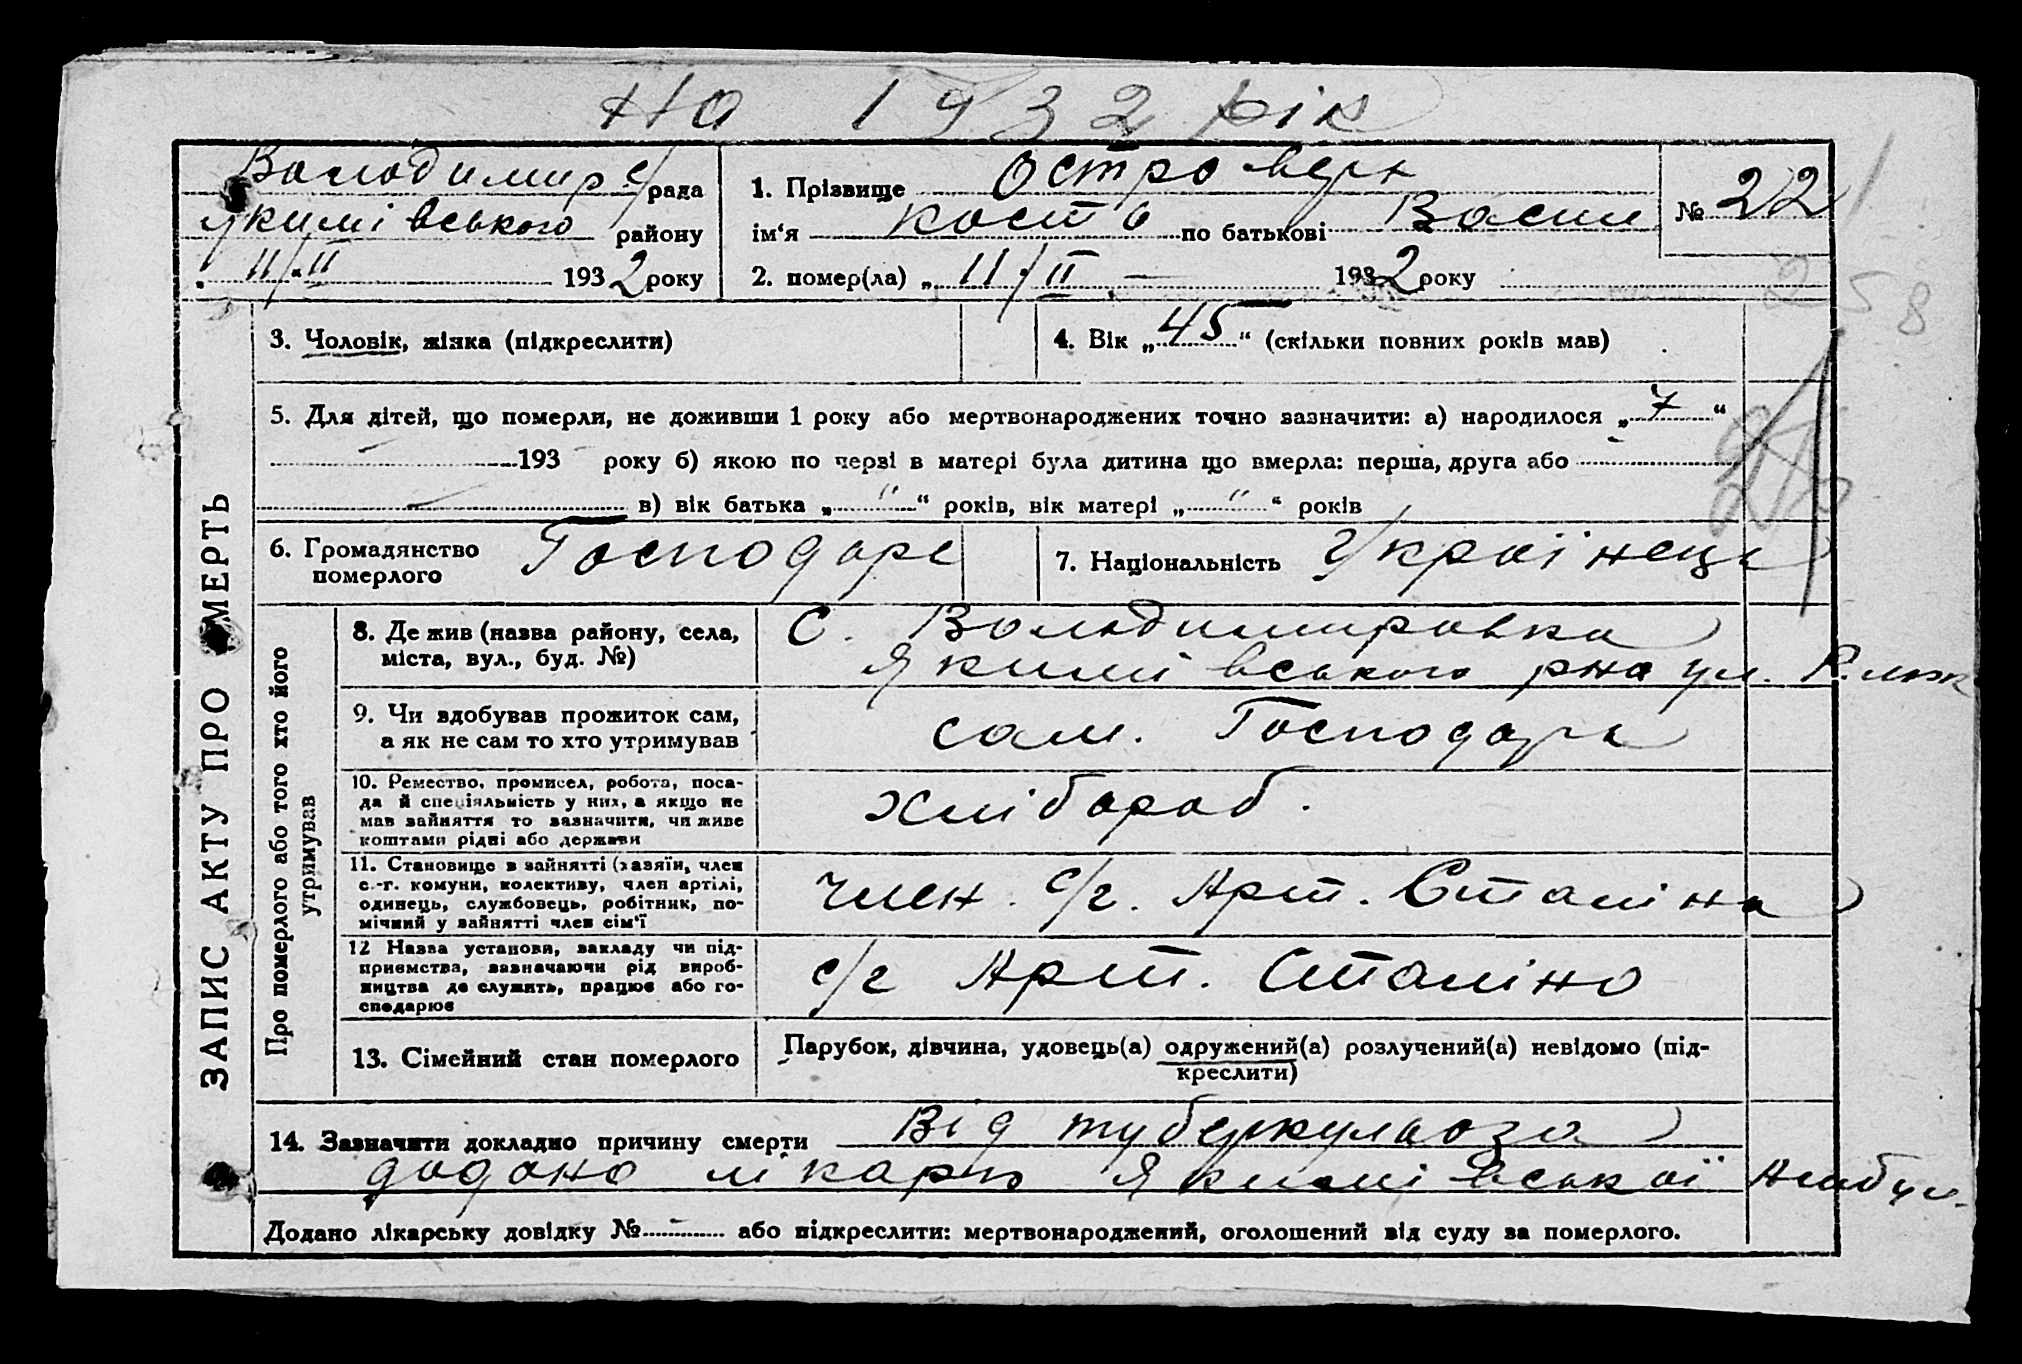 на 1932 рік
Володимир с/рада
Якимівського району
11/II 1932 року
1. Прізвище Островерх
ім‘я Кость по батькові Васил
№ 22
2. помер(ла) „ 11/II 1932 року
258
3. Чоловік, жінка (підкреслити)
4. Вік „45“ (скільки повних років мав)
5. Для дітей, що померли, не доживши 1 року або мертвонароджених точно зазначити: а) народилося „ “
193 року б) якою по черзі в матері була дитина що вмерла: перша, друга або
в) вік батька „ “ років, вік матері „ “ років
6. Громадянство
померлого
Господарь
7. Національність Украінець
ЗАПИС АКТУ ПРО СМЕРТЬ
Про померлого або того хто його
утримував
8. Де жив (назва району, села,
міста, вул., буд. №)
С. Володимировка
Якимівського рна ул.
9. Чи здобував прожиток сам,
а як не сам то хто утримував
сам. Господарь
10. Ремество, промисел, робота, поса-
да й спеціяльність у них, а якщо не
мав зайняття то зазначити, чи живе
коштами рідні або держави
хлібороб.
11. Становище в зайнятті (хазяїн, член
с.-г. комуни, колективу, член артілі,
одинець, службовець, робітник, по-
мічний у зайнятті член сім‘ї
член. с/г. Арт. Сталіна
12 Назва установи, закладу чи під-
приємства, зазначаючи рід вироб-
ництва де служить, працює або го-
сподарює
с/г Арт. Сталіна
13. Сімейний стан померлого
Парубок, дівчина, удовець(а) одружений(а) розлучений(а) невідомо (під-
креслити)
14. Зазначити докладно причину смерти Від туберкульоза
додано лікарь Якимівської Амбул.
Додано лікарську довідку № або підкреслити: мертвонароджений, оголошений від суду за померлого.